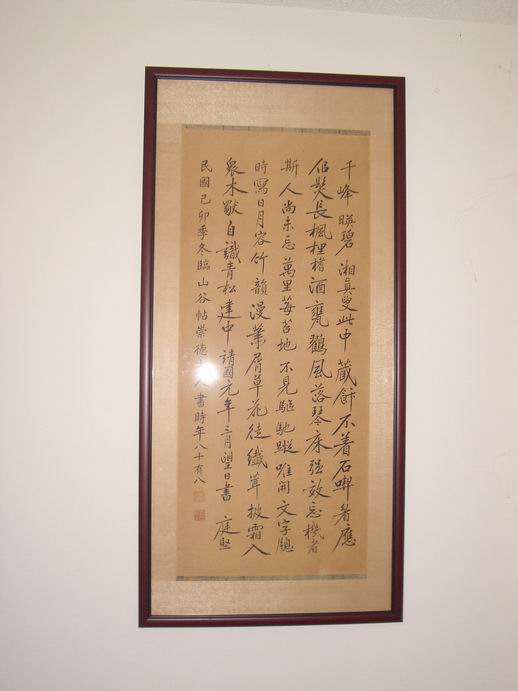 千峰映碧湘真叟此中藏餅不着石㗫煮應
侶髮長楓裡樁酒甕鸛風落琴床强效忘機者
斯人尚未忘萬里莓苔地不見驅馳蹤唯開文字牕
時寫日月容竹韻漫蕭屑草花徒纖茸披霜入
衆木獸自識青松建中靖國元年三月望日書 庭堅
民國己卯季冬臨山谷帖崇德 書時年八十有八